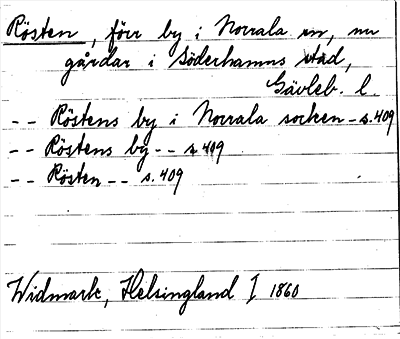 Rösten, förr by i Norrala sn, nu
gårdar i Söderhamns stad,
Gävleb. l.
-- Röstens by i Norrala socken - s. 409
-- Röstens by -- s. 409
-- Rösten -- s. 409
Widmark, Helsingland I 1860